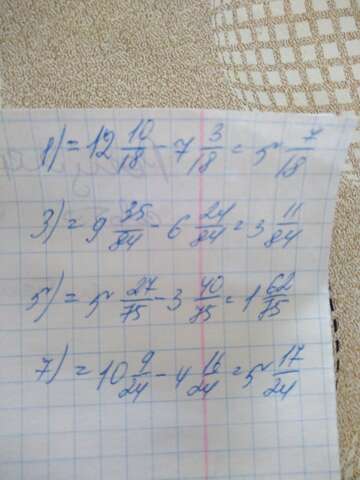 1) = 12 10/18 - 7 3/18 = 5 7/18
3) = 9 35/84 - 6 24/84 = 3 11/84
5) = 5 27/75 - 3 40/75 = 1 62/75
7) = 10 9/24 - 4 16/24 = 5 17/24